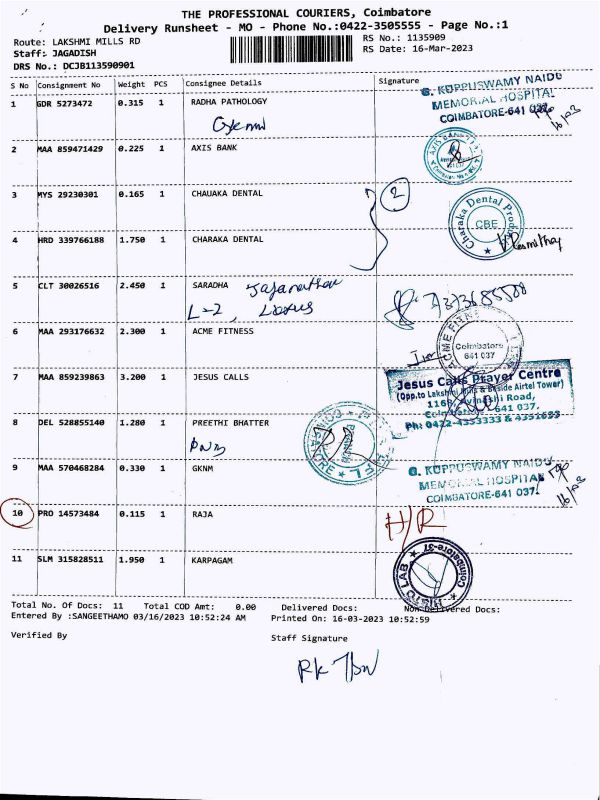 THE PROFESSIONAL COURIERS, Coimbatore
Delivery Runsheet - MO - Phone No.:0422-3505555 - Page No.:1
Route: LAKSHMI MILLS RD
RS No.: 1135909
Staff: JAGADISH
RS Date: 16-Mar-2023
DRS No.: DCJB113590901
S No Consignment No Weight PCS Consignee Details Signature
G. KUPPUSWAMY NAIDU
MEMORIAL HOSPITAL
COIMBATORE-641 037
16/03
1 GDR 5273472 0.315 1 RADHA PATHOLOGY
2 MAA 859471429 0.225 1 AXIS BANK
AXIS BANK
3 MYS 29230301 0.165 1 CHAUAKA DENTAL
2
Charaka Dental Produ
CBE
4 HRD 339766188 1.750 1 CHARAKA DENTAL
5 CLT 30026516 2.450 1 SARADHA
L-2,
6 MAA 293176632 2.300 1 ACME FITNESS
ACME FITNE
Coimbatore
641 037
7 MAA 859239863 3.200 1 JESUS CALLS
Jesus Calls Prayer Centre
(Opp.to Lakshmi Mills & Beside Airtel Tower)
1168, Avinashi Road,
Coimbatore - 641 037.
Ph: 0422-4353333 & 4351693
8 DEL 528855140 1.280 1 PREETHI BHATTER
PNB
9 MAA 570468284 0.330 1 GKNM
G. KUPPUSWAMY NAIDU
MEMORIAL HOSPITAL
COIMBATORE-641 037.
16/03
10 PRO 14573484 0.115 1 RAJA
H/R
11 SLM 315828511 1.950 1 KARPAGAM
HISTO LAB
Coimbatore-37
Total No. Of Docs: 11 Total COD Amt: 0.00 Delivered Docs: Non Delivered Docs:
Entered By :SANGEETHAMO 03/16/2023 10:52:24 AM Printed On: 16-03-2023 10:52:59
Verified By Staff Signature